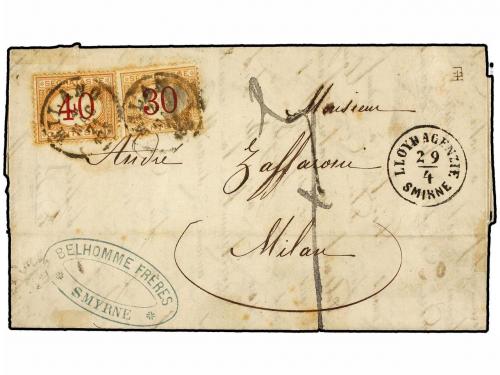 SEGNATASSE SEGNATASSE
40 30
MILANO MILANO
Monsieur
André Zaffaroni
Milan
LLOYD AGENZIE
29
4
SMIRNE
BELHOMME FRÈRES
* SMYRNE *